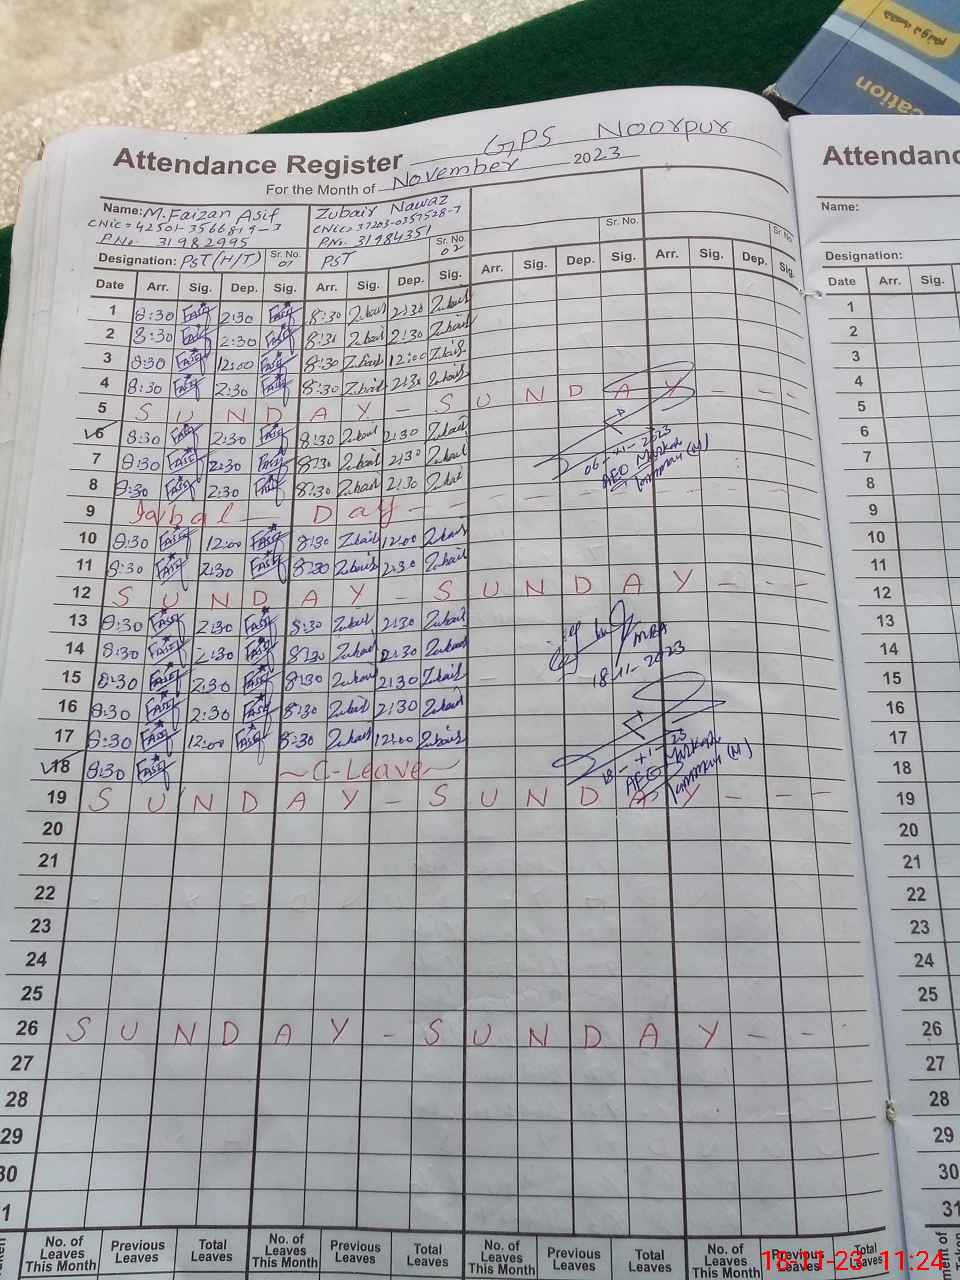 cation
Attendance Register GPS Noorpur
For the Month of November 2023
Name: M.Faizan Asif Zubair Nawaz
P.No. 31982995 P.No. 31984351
Sr. No. Sr. No. Sr. No.
Designation: PST (H/T) Sr. No. 01 PST Sr. No. 02
Date Arr. Sig. Dep. Sig. Arr. Sig. Dep. Sig. Arr. Sig. Dep. Sig. Arr. Sig. Dep. Sig.
1 8:30 Asif 2:30 Asif 8:30 Zubair 2:30 Zubair
2 8:30 Asif 2:30 Asif 8:30 Zubair 2:30 Zubair
3 8:30 Asif 12:00 Asif 8:30 Zubair 12:00 Zubair
4 8:30 Asif 2:30 Asif 8:30 Zubair 2:30 Zubair
5 S U N D A Y - S U N D A Y - -
6 8:30 Asif 2:30 Asif 8:30 Zubair 2:30 Zubair
06-11-2023
7 8:30 Asif 2:30 Asif 8:30 Zubair 2:30 Zubair
AEO Markaz
8 8:30 Asif 2:30 Asif 8:30 Zubair 2:30 Zubair
(M)
9 Iqbal Day
10 8:30 Asif 12:00 Asif 8:30 Zubair 12:00 Zubair
11 8:30 Asif 2:30 Asif 8:30 Zubair 2:30 Zubair
12 S U N D A Y - S U N D A Y - - -
13 8:30 Asif 2:30 Asif 8:30 Zubair 2:30 Zubair
14 8:30 Asif 2:30 Asif 8:30 Zubair 2:30 Zubair MEA
15 8:30 Asif 2:30 Asif 8:30 Zubair 2:30 Zubair 18-11-2023
16 8:30 Asif 2:30 Asif 8:30 Zubair 2:30 Zubair
17 8:30 Asif 12:00 Asif 8:30 Zubair 12:00 Zubair
18 8:30 Asif ~C-Leave~ 18-11-23
AEO Markaz
(M)
19 S U N D A Y - S U N D A Y - - -
20
21
22
23
24
25
26 S U N D A Y - S U N D A Y - -
27
28
29
30
1
No. of Leaves This Month Previous Leaves Total Leaves No. of Leaves This Month Previous Leaves Total Leaves No. of Leaves This Month Previous Leaves Total Leaves No. of Leaves This Month Previous Leaves Total Leaves
Attendanc
Name:
Designation:
Date Arr. Sig.
1
2
3
4
5
6
7
8
9
10
11
12
13
14
15
16
17
18
19
20
21
22
23
24
25
26
27
28
29
30
31
18-11-23 11:24